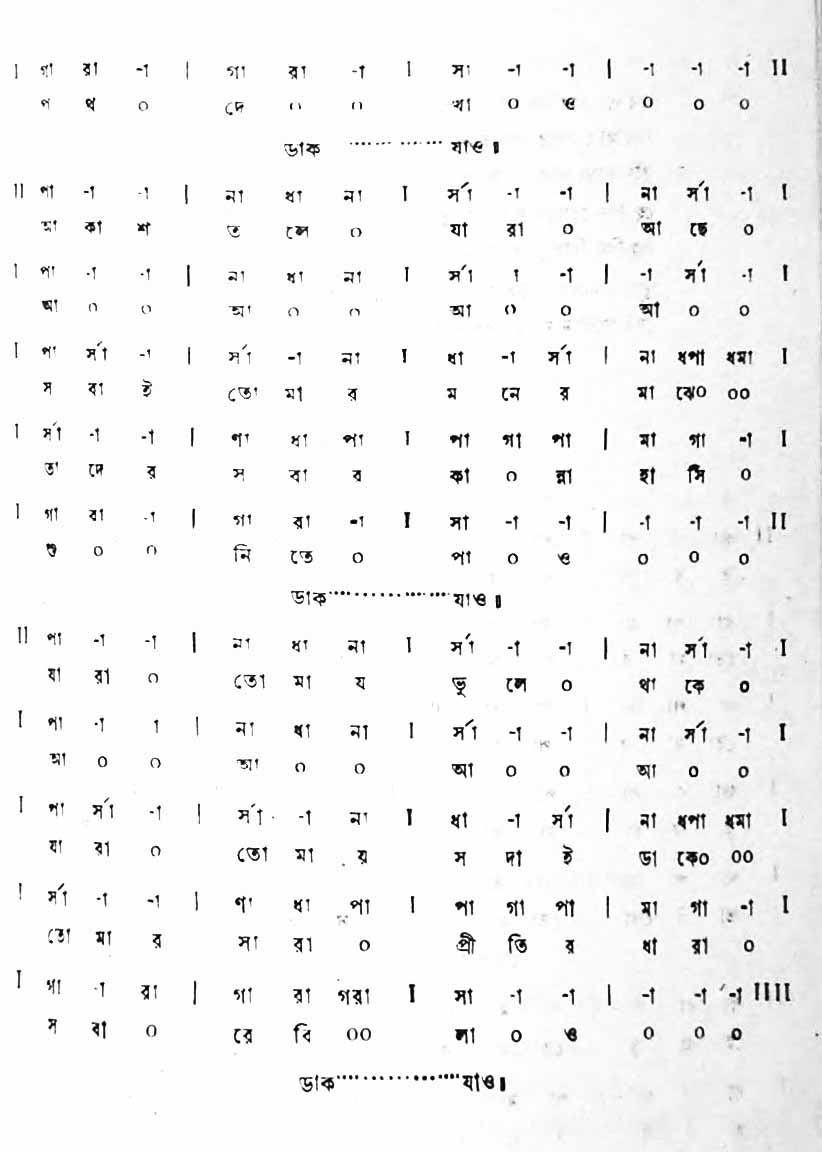 I গা রা -া | গা রা -া I সা -া -া | -া -া -া II
প থ ০ দে ০ ০ খা ০ ও ০ ০ ০
ডাক ………… যাও॥
II পা -া -া | না ধা না I র্সা -া -া | না র্সা -া I
আ কা শ ত লে ০ যা রা ০ আ ছে ০
I পা -া -া | না ধা না I র্সা া -া | -া র্সা -া I
আ ০ ০ আ ০ ০ আ ০ ০ আ ০ ০
I পা র্সা -া | র্সা -া না I ধা -া র্সা | না ধপা ধমা I
স বা ই তো মা র ম নে র মা ঝে০ ০০
I র্সা -া -া | ণা ধা পা I পা গা পা | মা গা -া I
তা দে র স বা র কা ০ ন্না হা সি ০
I গা রা -া | গা রা -া I সা -া -া | -া -া -া II
শু ০ ০ নি তে ০ পা ০ ও ০ ০ ০
ডাক………………যাও॥
II পা -া -া | না ধা না I র্সা -া -া | না র্সা -া I
যা রা ০ তো মা য ভু লে ০ থা কে ০
I পা -া া | না ধা না I র্সা -া -া | না র্সা -া I
আ ০ ০ আ ০ ০ আ ০ ০ আ ০ ০
I পা র্সা -া | র্সা -া না I ধা -া র্সা | না ধপা ধমা I
যা রা ০ তো মা য় স দা ই ডা কে০ ০০
I র্সা -া -া | ণা ধা পা I পা গা পা | মা গা -া I
তো মা র সা রা ০ প্রী তি র ধা রা ০
I গা -া রা | গা রা গরা I সা -া -া | -া -া -া IIII
স বা ০ রে বি ০০ লা ০ ও ০ ০ ০
ডাক………………যাও॥